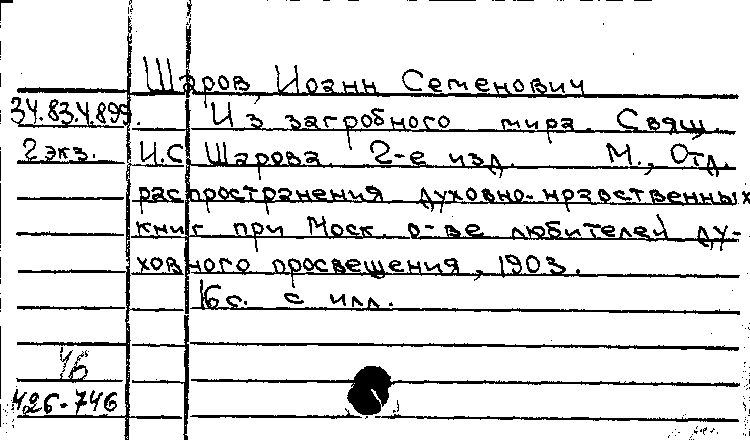 Шаров, Иоанн Семенович
34.83.4.899. Из загробного мира. Свящ.
2 экз. И.С. Шарова. 2-е изд. М., Отд.
распространения духовно-нравственных
книг при Моск. о-ве любителей ду-
ховного просвещения, 1903.
16 с. с илл.
46
426-746